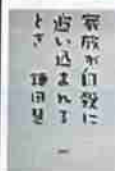 家族が自殺に
追い込まれる
とき 鎌田慧